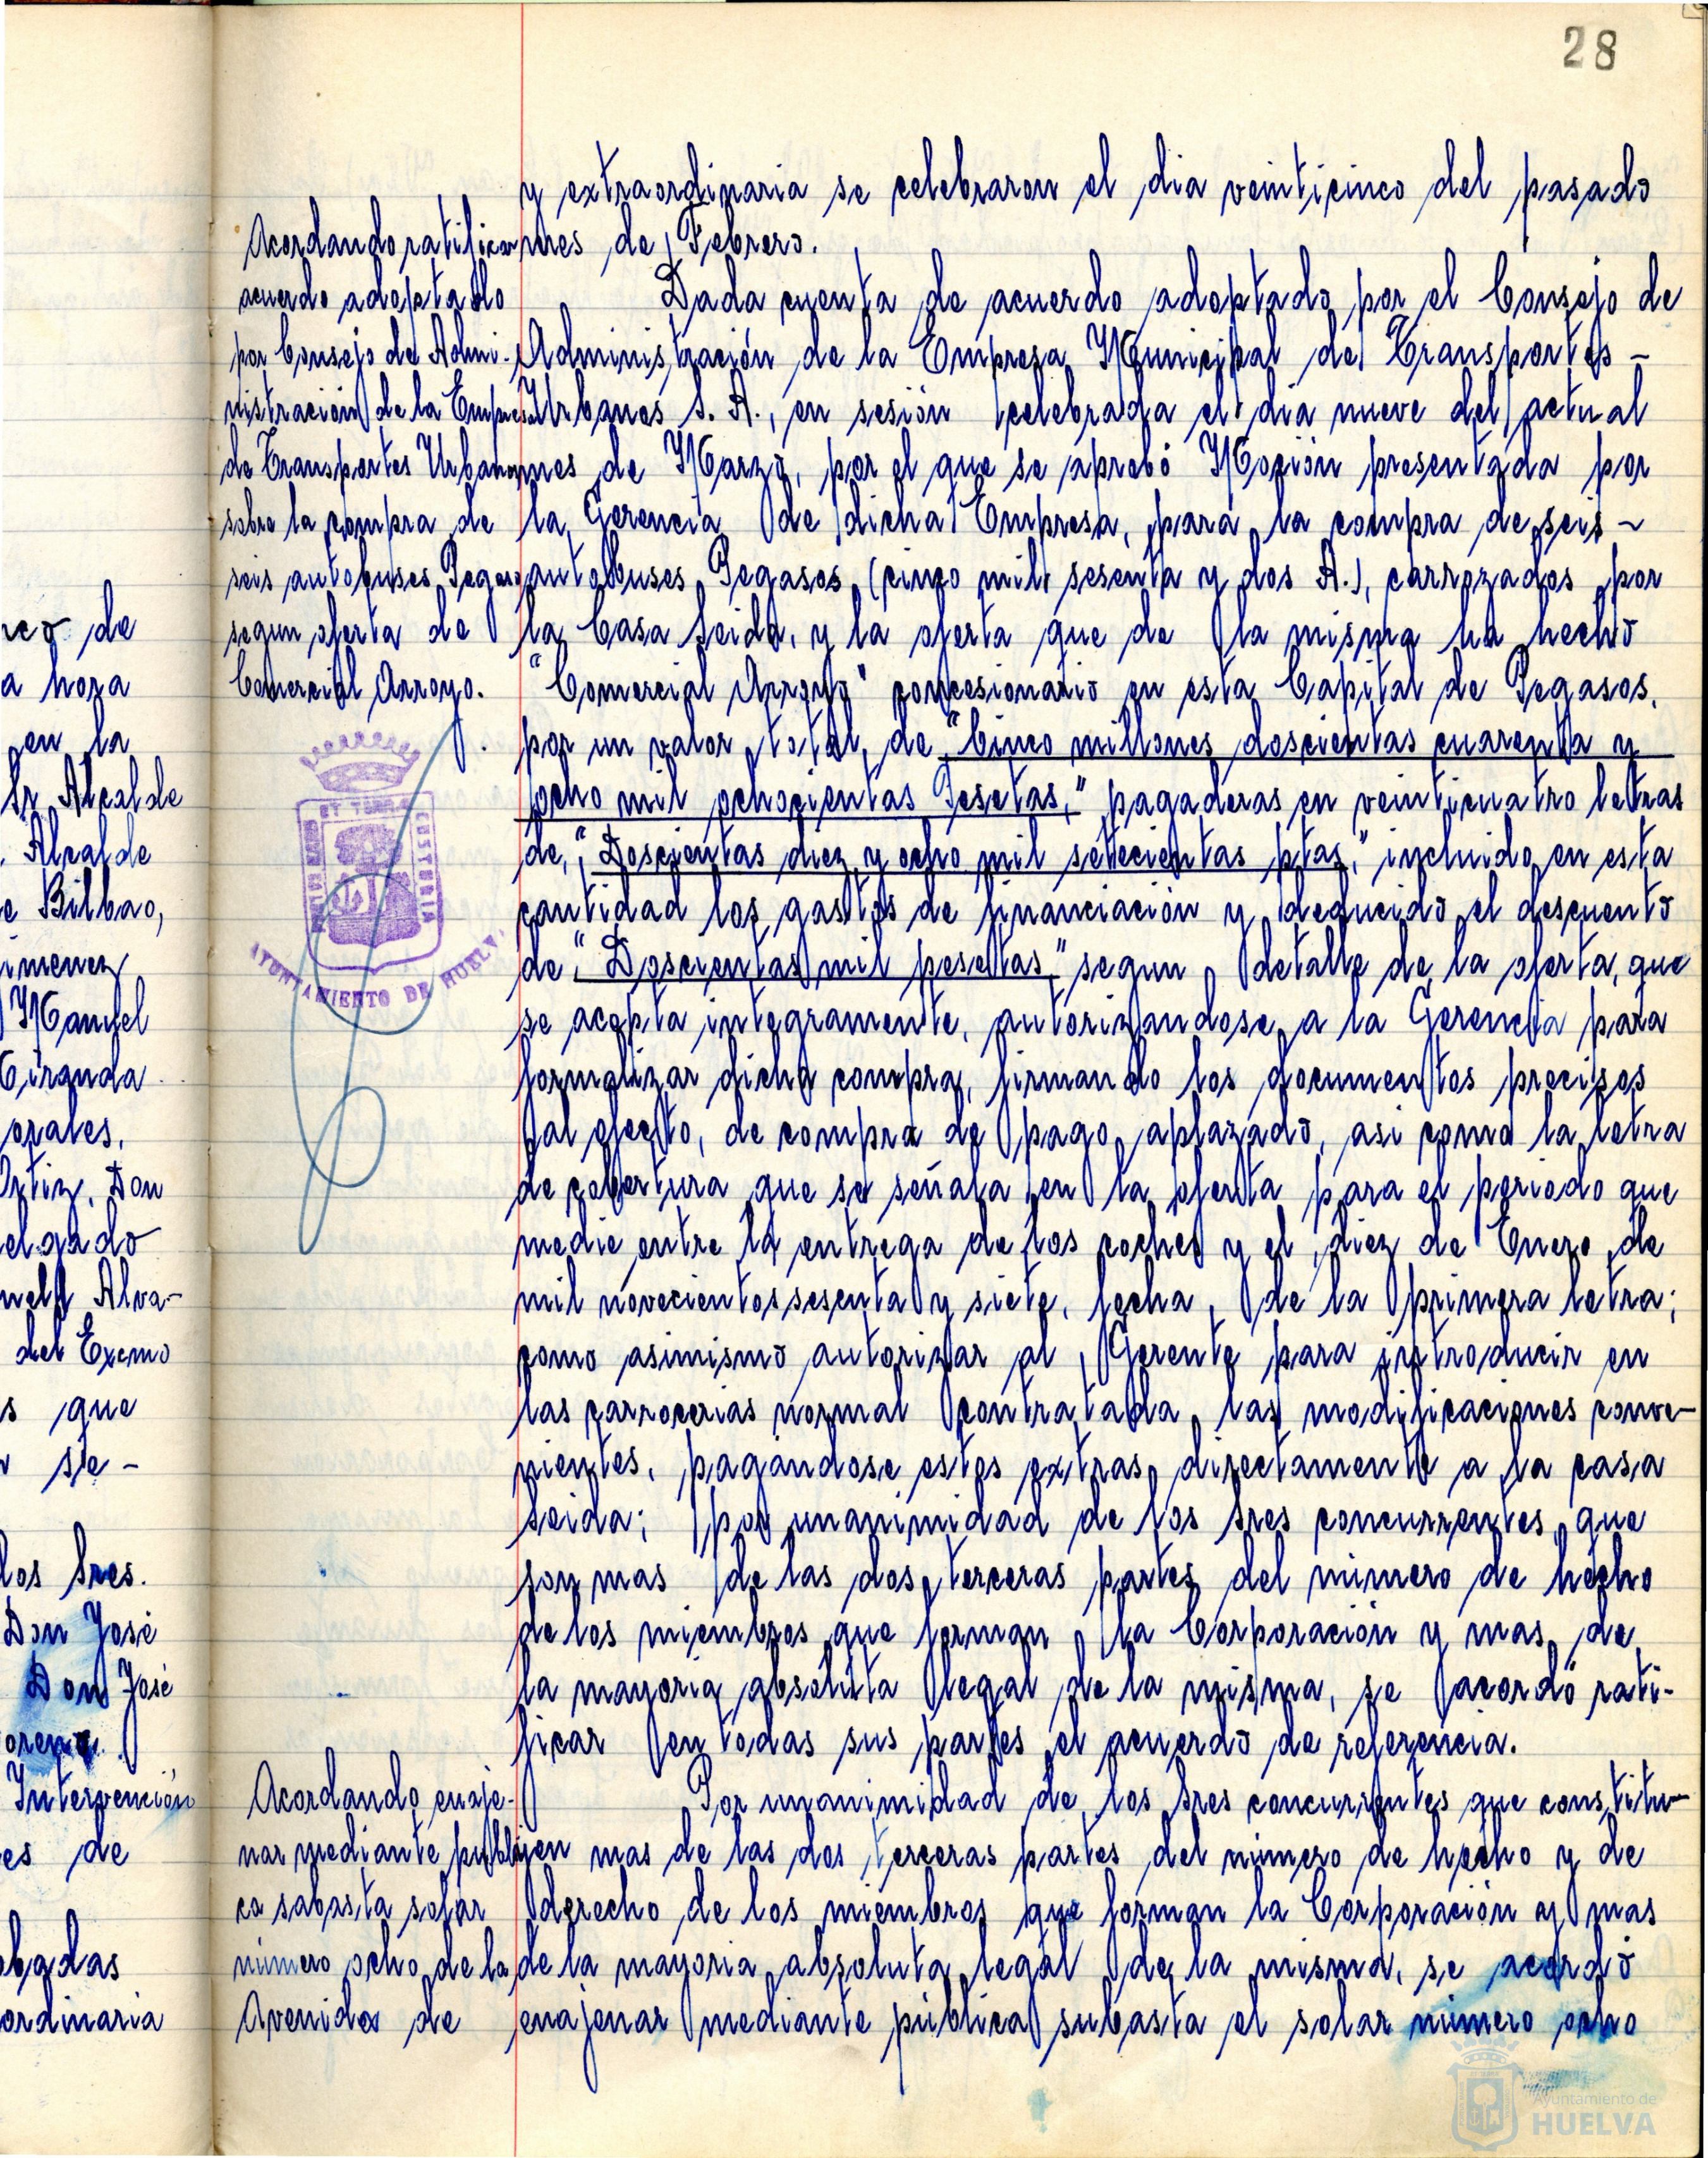 28
y extraordinaria se celebraron el dia veinticinco del pasado
mes de Febrero.
Dada cuenta de acuerdo adoptado por el Consejo de
Administración de la Empresa Municipal de Transportes -
Urbanos S. A., en sesión celebrada el dia nueve del actual
mes de Marzo, por el que se aprobó Moción presentada por
la Gerencia de dicha Empresa, para la compra de seis -
autobuses Pegasos (cinco mil sesenta y dos A.), carrozados por
la Casa Seida, y la oferta que de la misma ha hecho
"Comercial Arroyo" concesionario en esta Capital de Pegasos,
por un valor total, de "Cinco millones doscientas cuarenta y
ocho mil ochocientas Pesetas," pagaderas en veinticuatro letras
de, "Doscientas diez y ocho mil setecientas ptas," incluido en esta
cantidad los gastos de financiación y deducido el descuento
de "Doscientas mil pesetas," segun detalle de la oferta, que
se acepta integramente, autorizandose a la Gerencia para
formalizar dicha compra, firmando los documentos precisos
al efecto, de compra de pago aplazado, asi como la letra
de cobertura que se señala en la oferta para el periodo que
medie entre la entrega de los coches y el diez de Enero de
mil novecientos sesenta y siete, fecha, de la primera letra;
como asimismo autorizar al Gerente para introducir en
las carrocerias normal contratada, las modificaciones conve-
nientes, pagandose estos extras, directamente a la casa
Seida; por unanimidad de los Sres concurrentes que
son mas de las dos terceras partes del número de hecho
de los miembros que forman la Corporación y mas de
la mayoria absoluta legal de la misma, se acordó rati-
ficar en todas sus partes el acuerdo de referencia.
Por unanimidad de los Sres concurrentes que constitu-
yen mas de las dos terceras partes del número de hecho y de
derecho de los miembros que forman la Corporación y mas
de la mayoria absoluta legal de la misma, se acordó
enajenar mediante pública subasta el solar número ocho
Acordando ratificar
acuerdo adoptado
por Consejo de Admi-
nistración de la Empresa
de Transportes Urbanos
sobre la compra de
seis autobuses Pegaso
segun oferta de
Comercial Arroyo.
AYUNTAMIENTO DE HUELVA
Acordando enaje-
nar mediante públi-
ca subasta solar
número ocho de la
Avenida de
de
a hora
en la
Sr Alcalde
Alcalde
e Bilbao,
imenez
Manuel
Miranda
orales,
Ortiz, Don
elgado
Alva-
del Excmo
s que
se -
los Sres.
Don José
Don José
oreno.
Intervención
es de
obadas
ordinaria
Ayuntamiento de
HUELVA